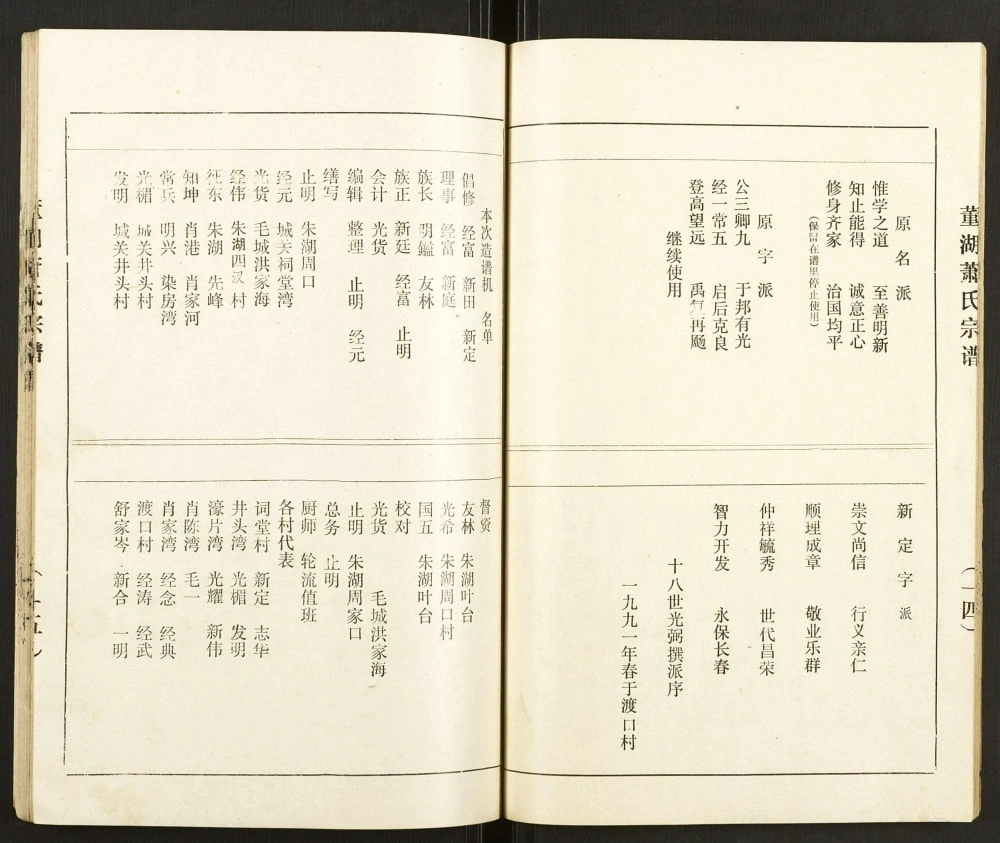 董湖萧氏宗谱
（一四）
原名派
惟学之道　至善明新
知止能得　诚意正心
修身齐家　治国均平
（保留在谱里停止使用）
原字派
公三卿九　于邦有光
经一常五　启后克良
登高望远　禹　再飏
继续使用
新定字派
崇文尚信　行义亲仁
顺理成章　敬业乐群
仲祥毓秀　世代昌荣
智力开发　永保长春
十八世光弼撰派序
一九九一年春于渡口村
本次造谱机　名单
倡修　经富　新田　新定
理事　经富　新庭
族长　明鑑　友林
族正　新廷　经富　止明
会计　光货
编辑　整理　止明　经元
缮写
止明　朱湖周口
经元　城关祠堂湾
光货　毛城洪家海
经伟　朱湖四汊村
征东　朱湖　先峰
知坤　肖港　肖家河
常兵　明兴　染房湾
光楣　城关井头村
发明　城关井头村
督资
友林　朱湖叶台
光希　朱湖周口村
国五　朱湖叶台
校对
光货　毛城洪家海
止明　朱湖周家口
总务　止明
厨师　轮流值班
各村代表
词堂村　新定　志华
井头湾　光楣　发明
濠片湾　光耀　新伟
肖陈湾　毛一
肖家湾　经念　经典
渡口村　经涛　经武
舒家岑　新合　一明
氏宗谱
（一五）